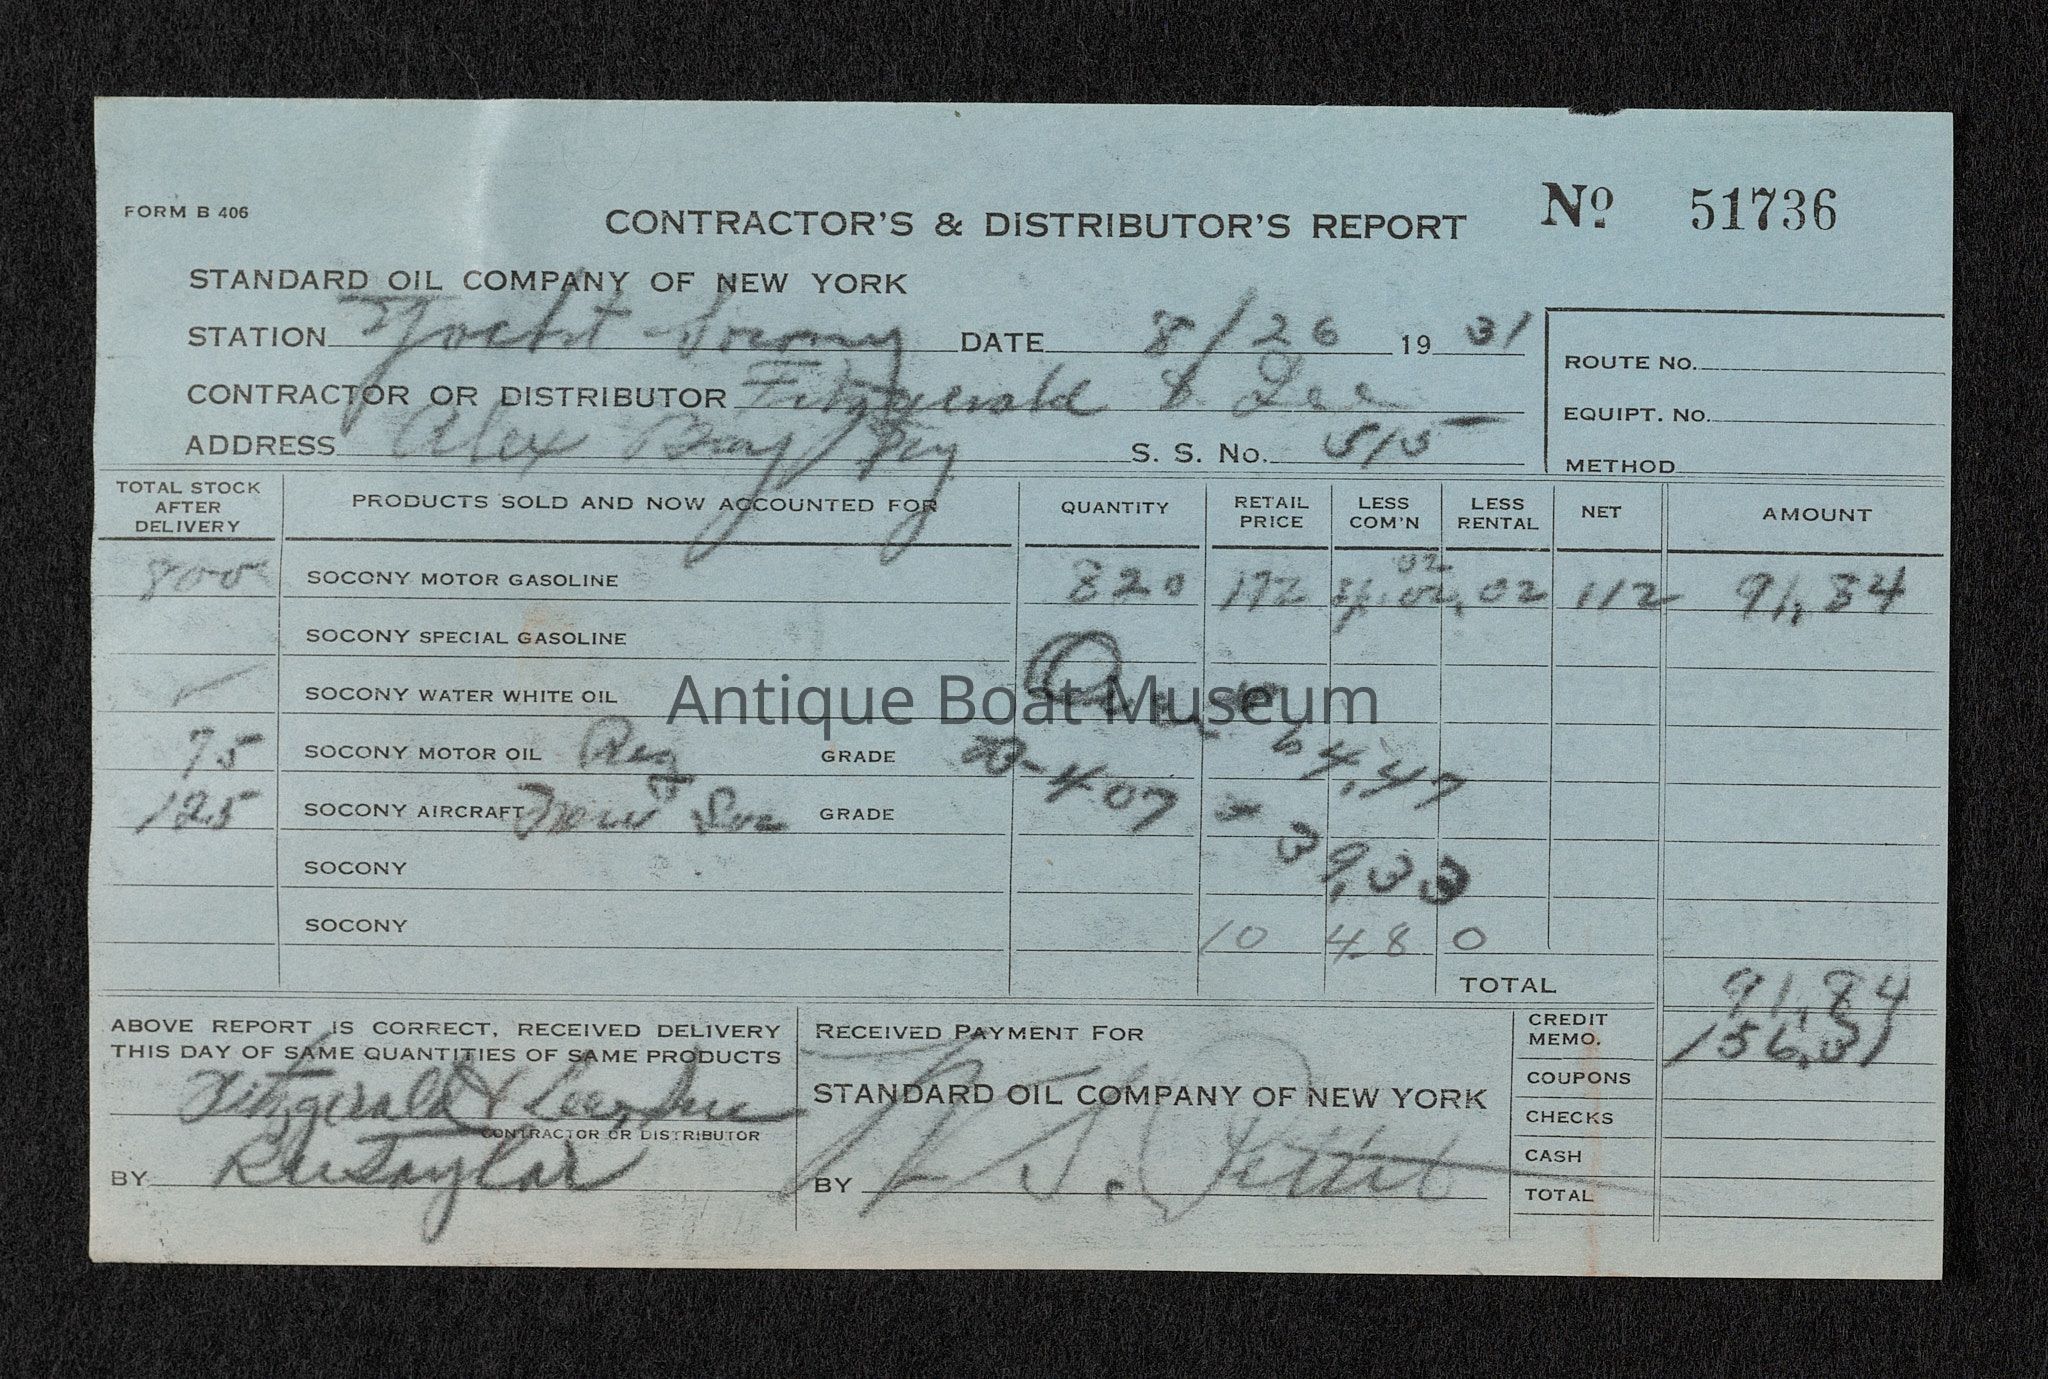 FORM B 406
CONTRACTOR'S & DISTRIBUTOR'S REPORT
No 51736
STANDARD OIL COMPANY OF NEW YORK
STATION Yacht Socony DATE 8/26 1931
ROUTE NO.
CONTRACTOR OR DISTRIBUTOR Fitzgerald & Lee
EQUIPT. NO.
ADDRESS Alex Bay NY S. S. No. 515
METHOD
TOTAL STOCK AFTER DELIVERY PRODUCTS SOLD AND NOW ACCOUNTED FOR QUANTITY RETAIL PRICE LESS COM'N LESS RENTAL NET AMOUNT
800 SOCONY MOTOR GASOLINE 820 172 02 02 .02 112 91.84
SOCONY SPECIAL GASOLINE
SOCONY WATER WHITE OIL
Antique Boat Museum
64.47
75 SOCONY MOTOR OIL Reg GRADE
407 39.33
125 SOCONY AIRCRAFT GRADE
SOCONY
SOCONY 10 48 0
TOTAL 91.84
ABOVE REPORT IS CORRECT, RECEIVED DELIVERY
THIS DAY OF SAME QUANTITIES OF SAME PRODUCTS
Fitzgerald & Lee, Inc
CONTRACTOR OR DISTRIBUTOR
BY RW Taylor
RECEIVED PAYMENT FOR
STANDARD OIL COMPANY OF NEW YORK
BY Pettit
CREDIT MEMO. 156.31
COUPONS
CHECKS
CASH
TOTAL